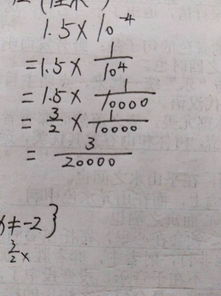 1.5 × 10⁻⁴
= 1.5 × 1/10⁴
= 1.5 × 1/10000
= 3/2 × 1/10000
= 3/20000
≠ -2}
3/2 x